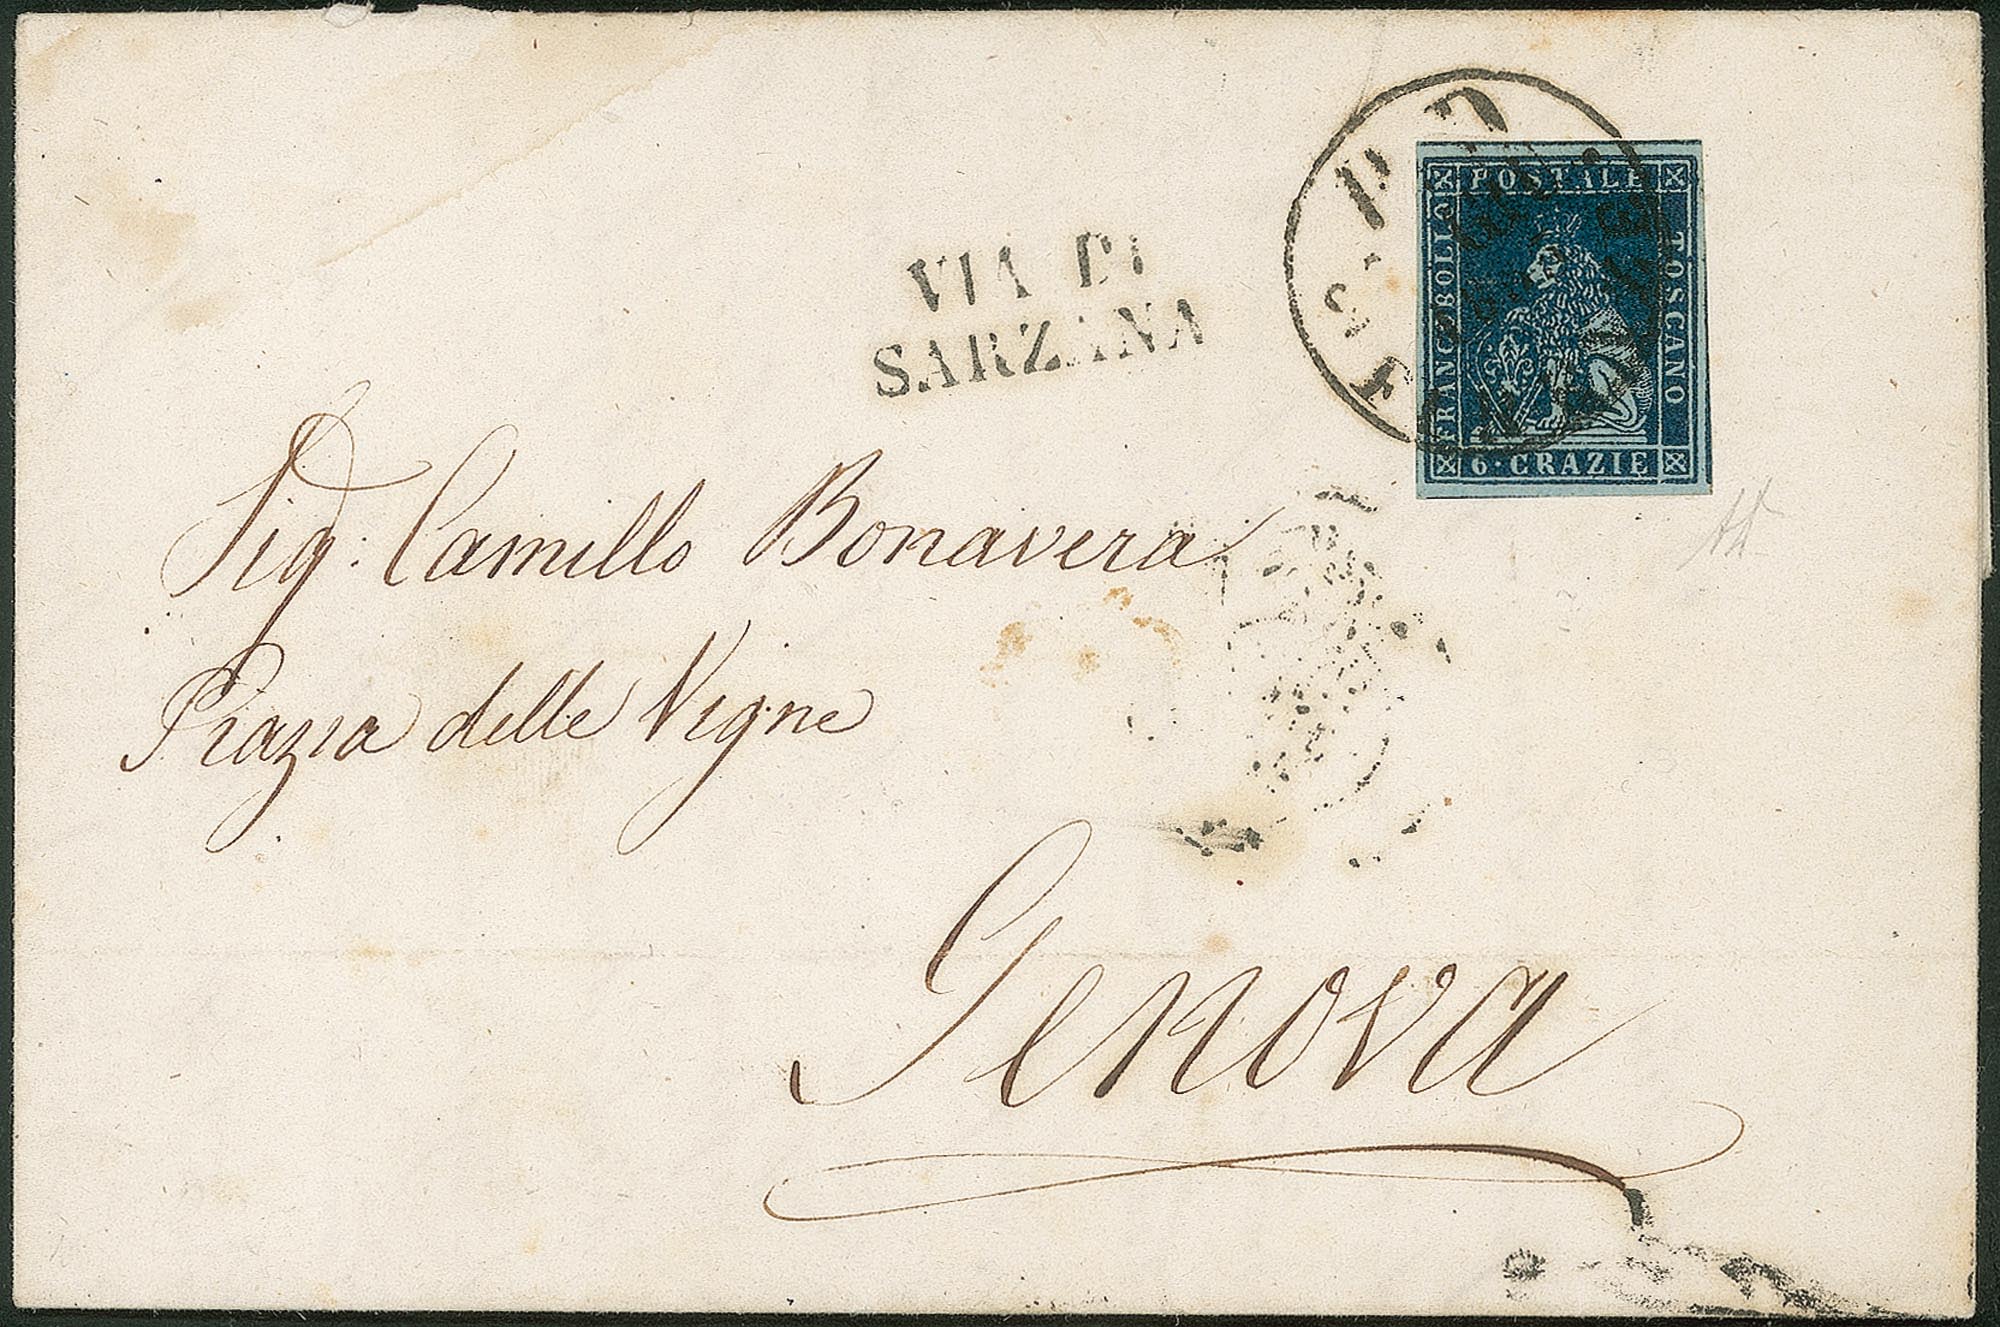 VIA DI
SARZANA
P D
FRANCOBOLLO
POSTALE
TOSCANO
6 · CRAZIE
Sig: Camillo Bonavera
Piazza delle Vigne
Genova